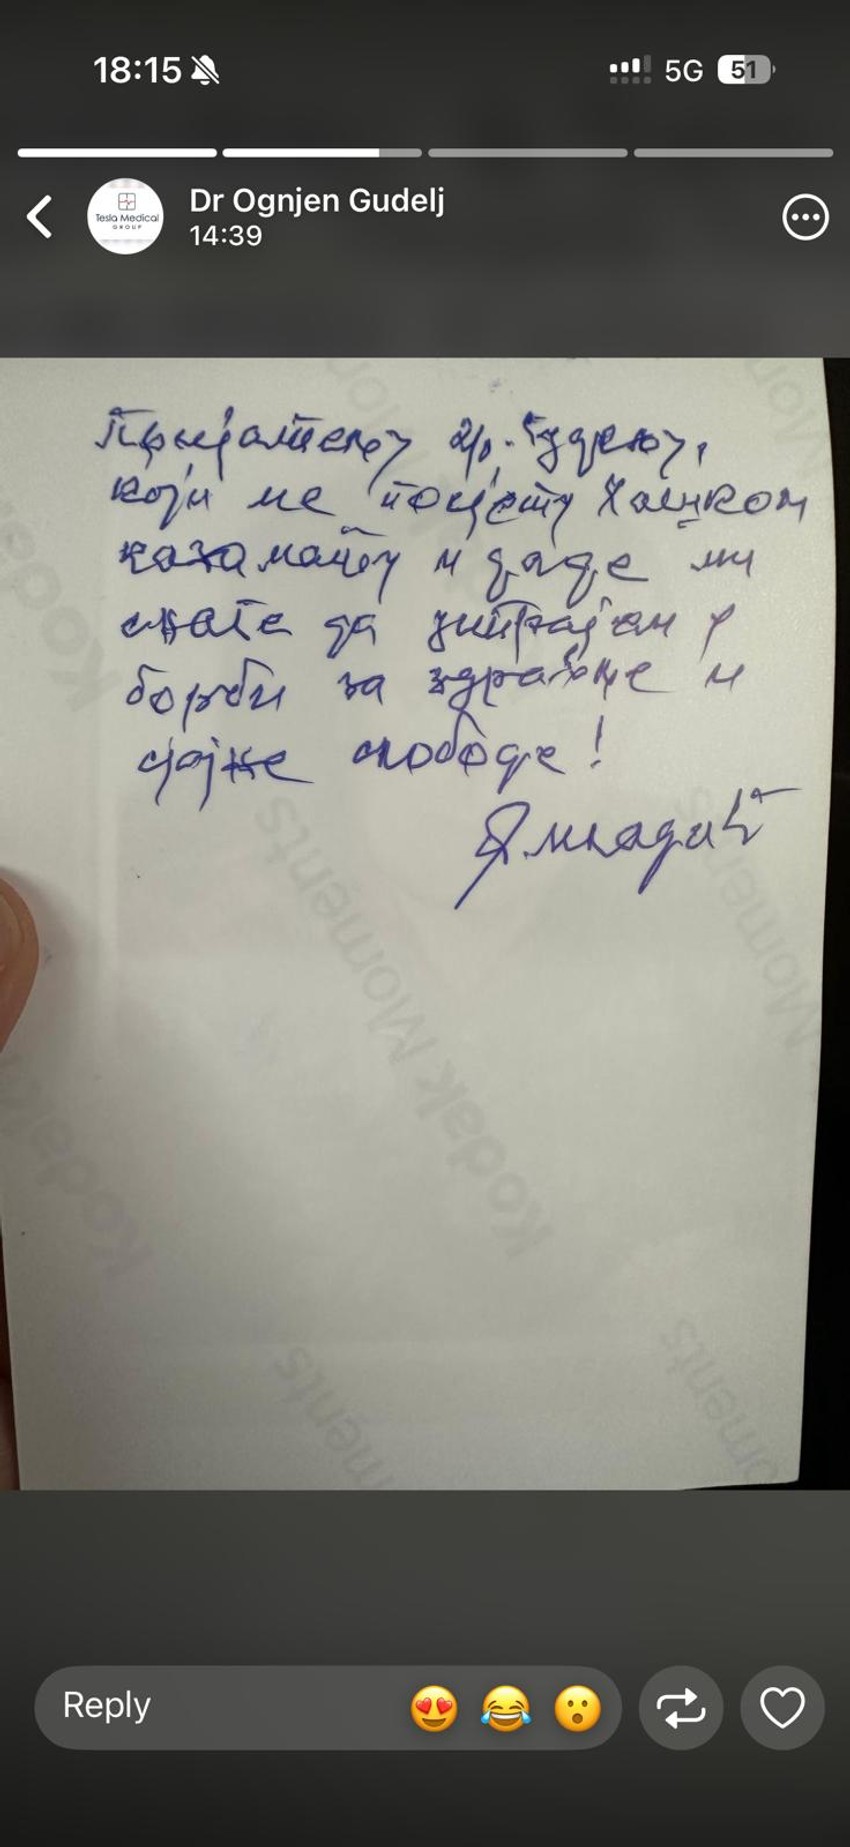 18:15
5G 51
Tesla Medical
GROUP
Dr Ognjen Gudelj
14:39
Пријатељу др. Гудељу,
који ме посјети у Хашком
казамату и даде ми
снаге да истрајем у
борби за здравље и
слободе!
Р Младић
Kodak Moments
Kodak
Moments
Reply